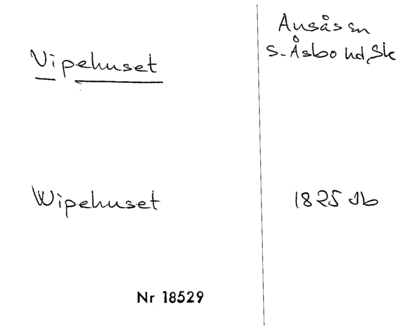 Vipehuset
Ausås sn
S. Åsbo hd, Sk
Wipehuset
1825 db
Nr 18529